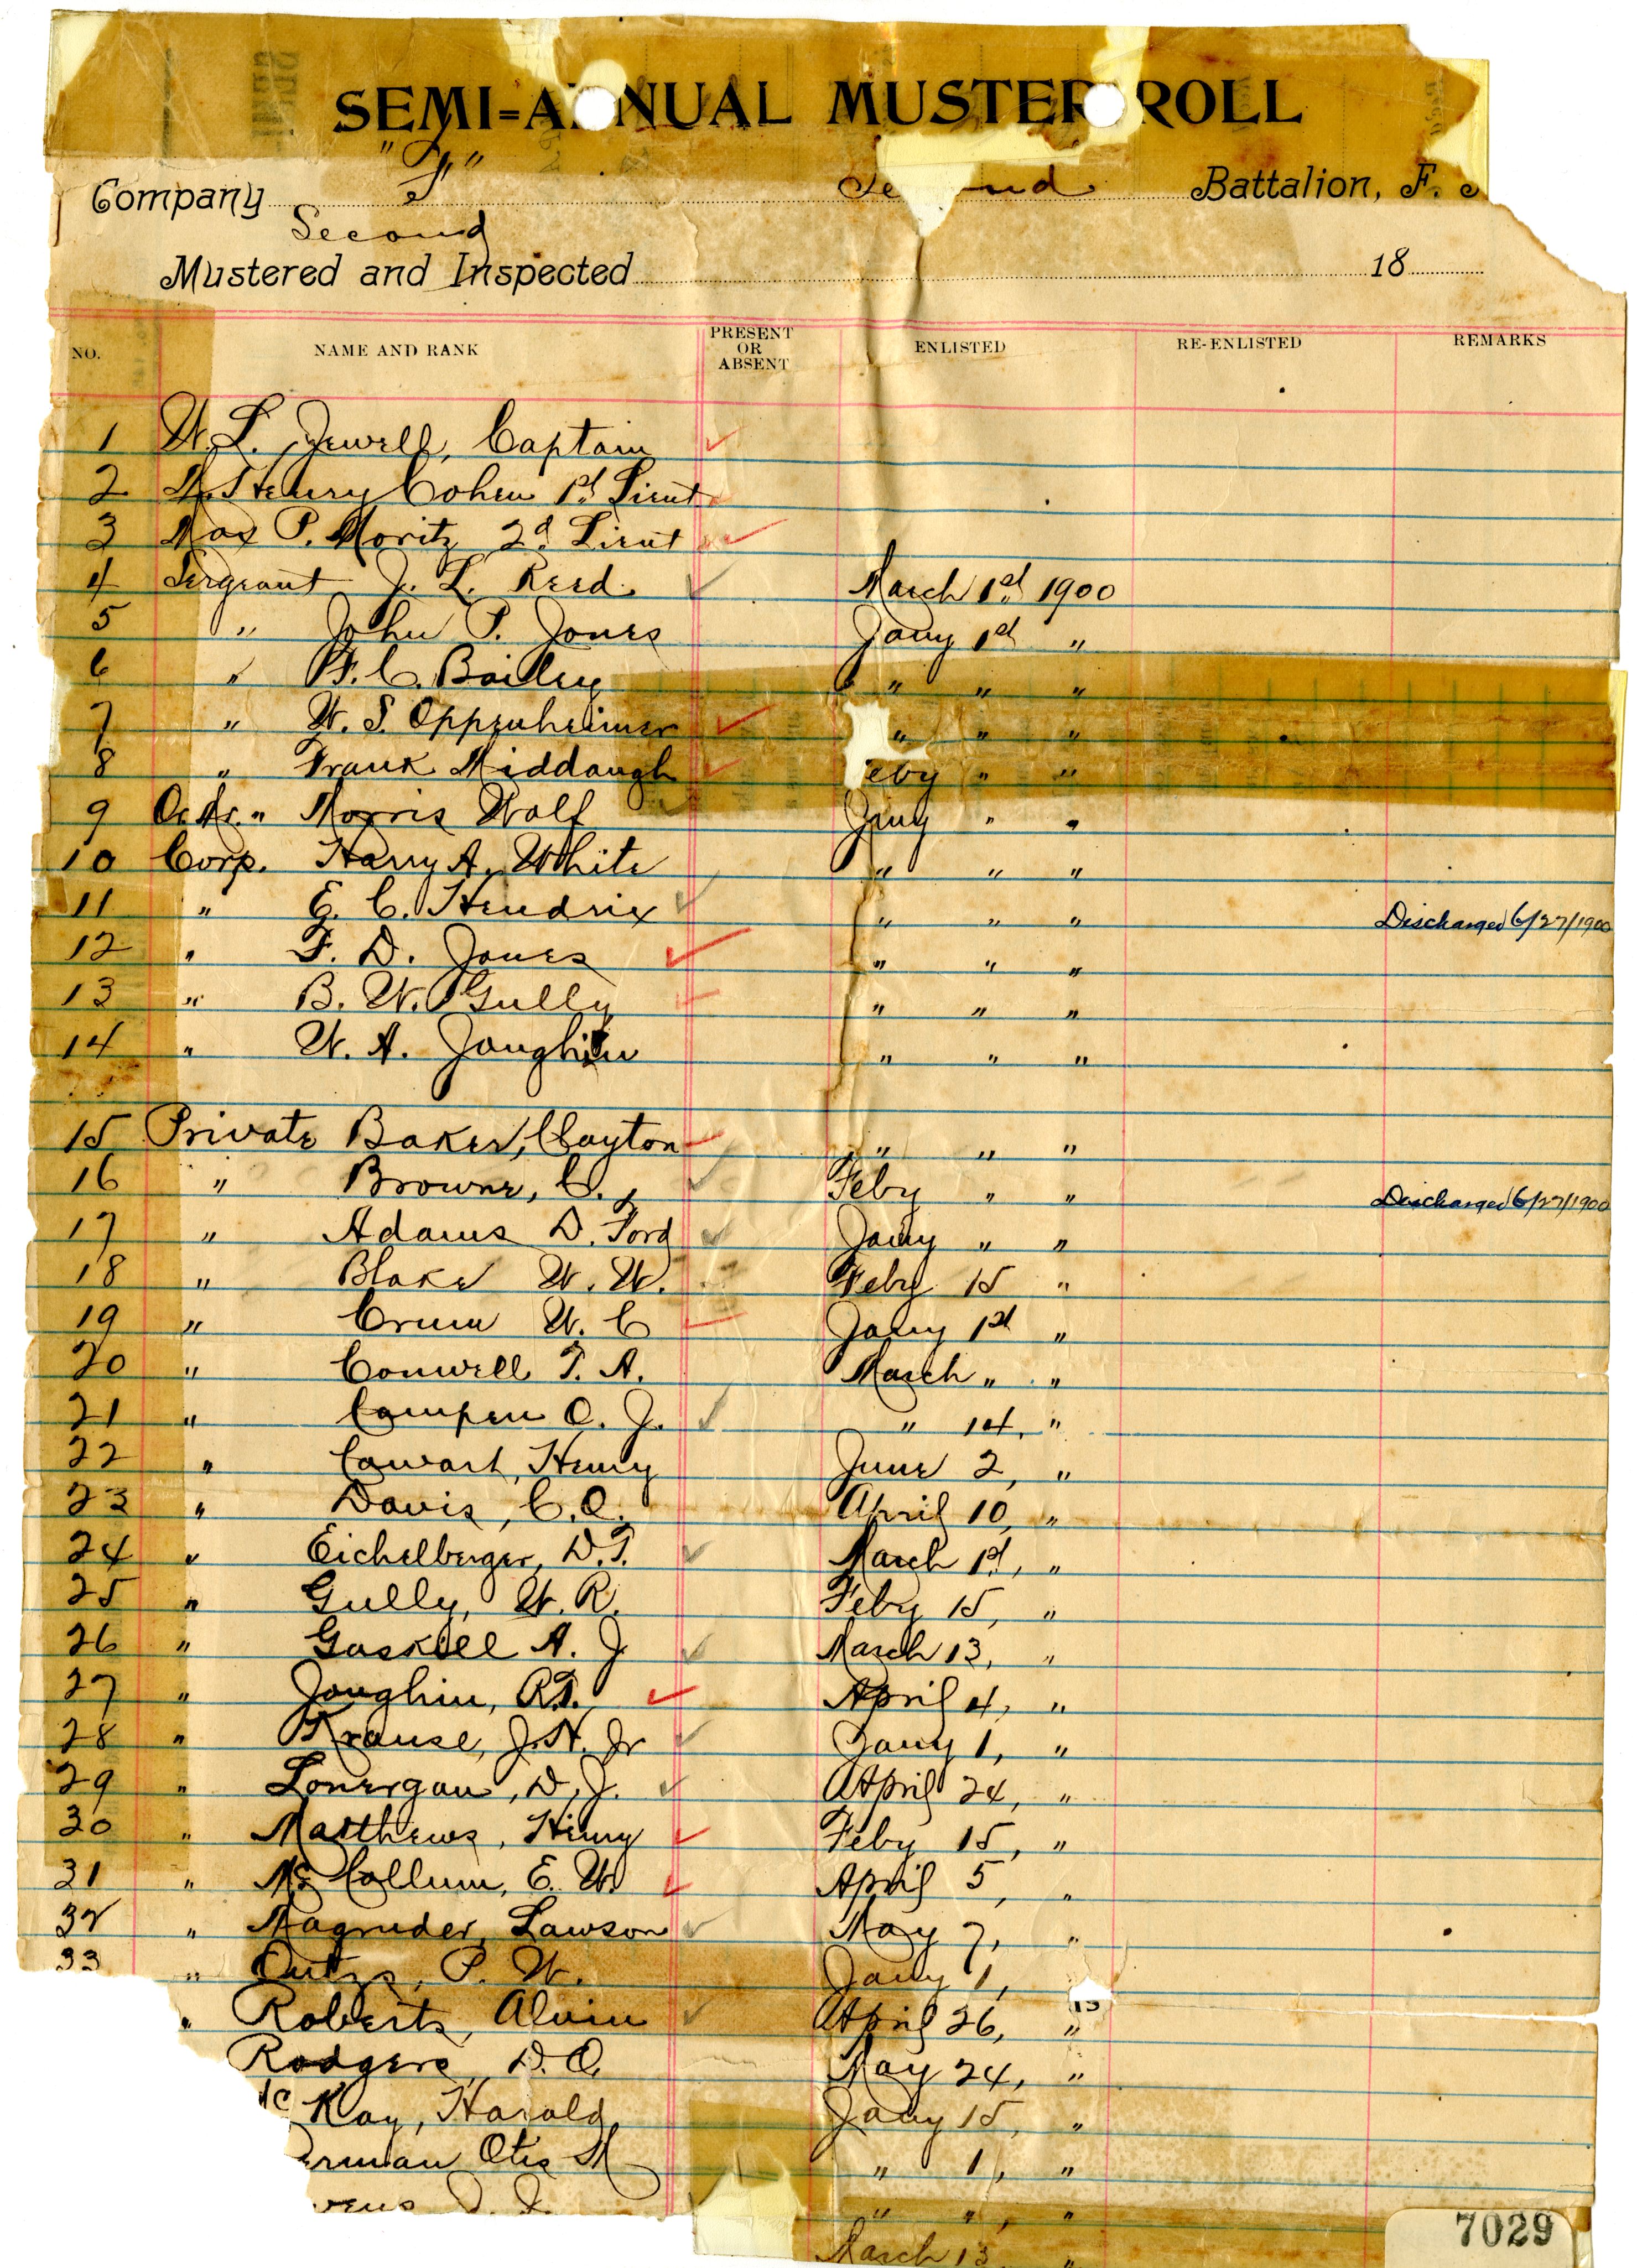 SEMI=ANNUAL MUSTER ROLL
Company "F" Second Battalion, F. S
Second
Mustered and Inspected 18
NO. NAME AND RANK PRESENT OR ABSENT ENLISTED RE-ENLISTED REMARKS
1 W. L. Jewell, Captain
2 Henry Cohen 1st Lieut
3 Max P. Moritz 2d Lieut
4 Sergeant J. L. Reed March 1st 1900
5 " John P. Jones Jany 1st "
6 " F. C. Bailey " " "
7 " W. S. Oppenheimer " " "
8 " Frank Middaugh eby " "
9 Q. Mr. " Morris Wolf Jany " "
10 Corp. Harry A. White " " "
11 " E. C. Hendrix " " " Discharged 6/27/1900
12 " F. D. Jones " " "
13 " B. W. Gully " " "
14 " W. A. Joughin " " "
15 Private Baker, Clayton " " "
16 " Browne, C. Feby " " Discharged 6/27/1900
17 " Adams D. Ford Jany " "
18 " Blake W. W. Feby 15 "
19 " Crum W. C Jany 1st "
20 " Conwell T. A. March " "
21 " Campen O. J. " 14, "
22 " Cowart, Henry June 2, "
23 " Davis, C. O. April 10, "
24 " Eichelberger, D. T. March 1st, "
25 " Gully, W. R. Feby 15, "
26 " Gaskill A. J March 13, "
27 " Joughin, R. T. April 4, "
28 " Krause, J. H. Jr Jany 1, "
29 " Lonergan, D. J. April 24, "
30 " Matthews, Henry Feby 15, "
31 " McCollum, E. W. April 5, "
32 " Magruder, Lawson May 7, "
33 " Outzs, P. W. Jany 1,
" Roberts, Alvin April 26, "
Rodgers, D. O. May 24, "
Mc Kay, Harold Jany 15, "
erman Otis M " 1, "
vens J. J. " ", "
March 13 "
7029